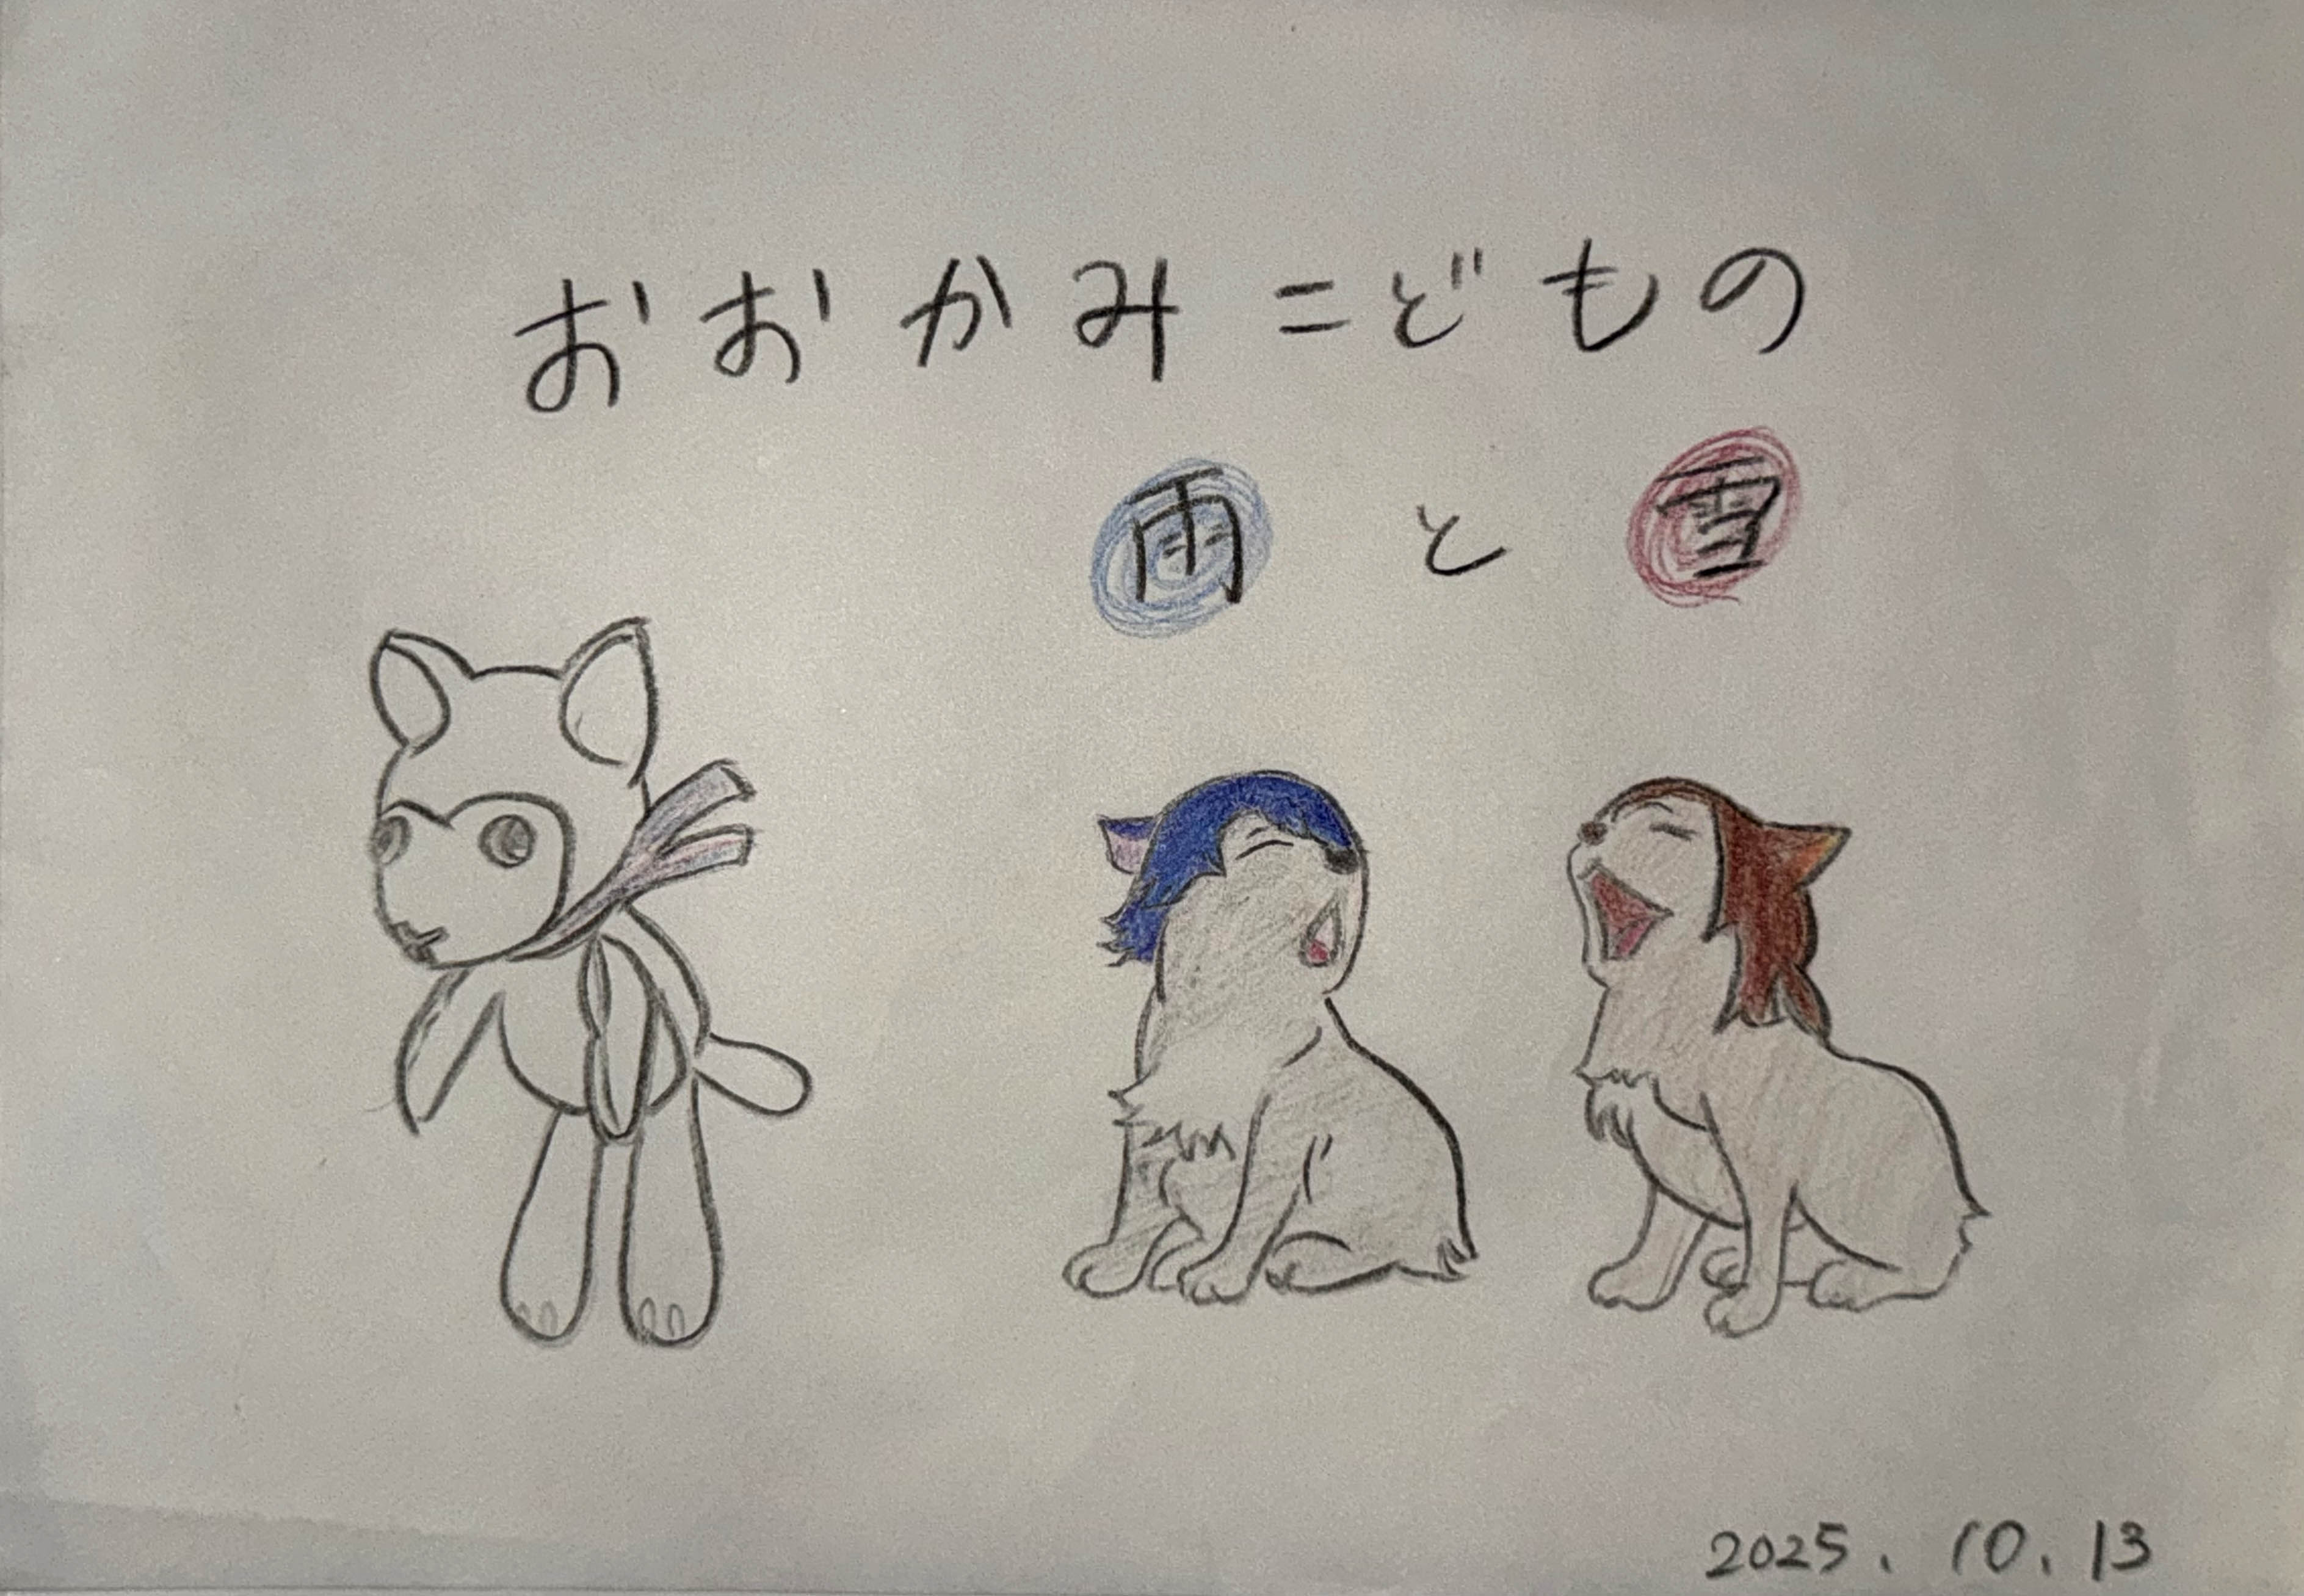 おおかみこどもの
雨と雪
2025.10.13